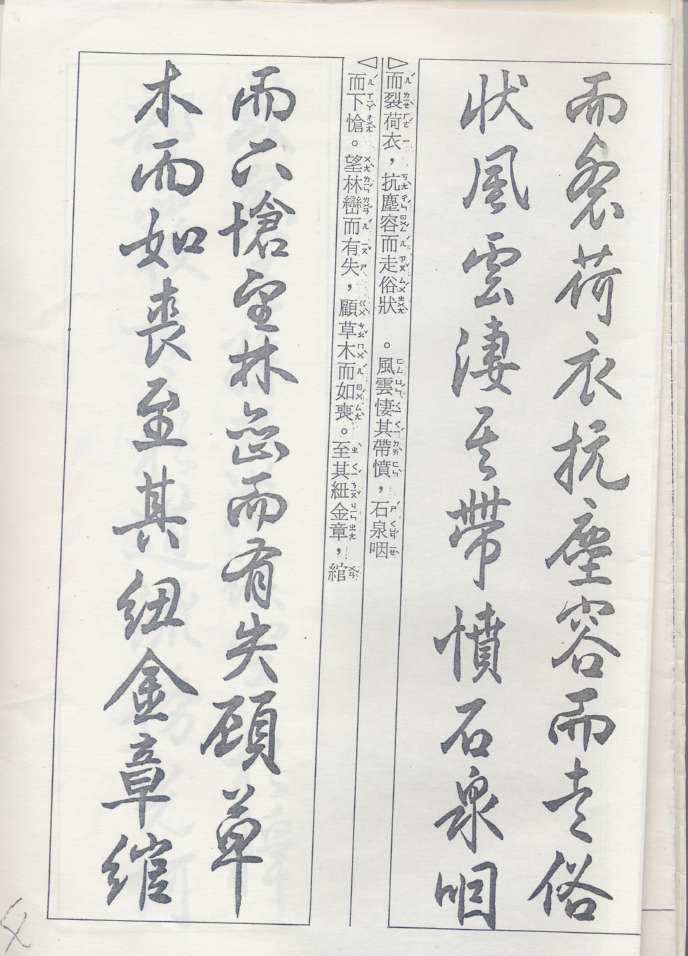 而裂荷衣抗塵容而走俗
狀風雲淒其帶憤石泉咽
而裂荷衣，抗塵容而走俗狀。風雲悽其帶憤，石泉咽
而下愴。望林巒而有失，顧草木而如喪。至其紐金章，綰
而下愴望林巒而有失顧草
木而如喪至其紐金章綰